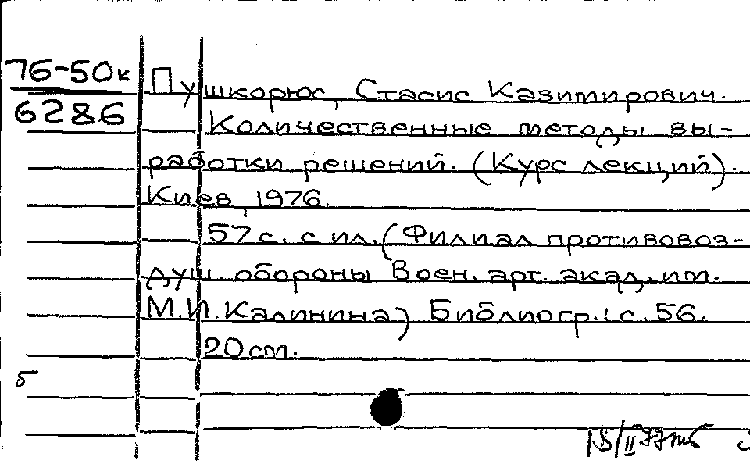 76-50к
6286
Пушкорюс, Стасис Казимирович.
Количественные методы вы-
работки решений. (Курс лекций).
Киев, 1976.
57 с. с ил. (Филиал противовоз-
душ. обороны Воен. арт. акад. им.
М.И. Калинина) Библиогр.: с. 56.
20 см.
б